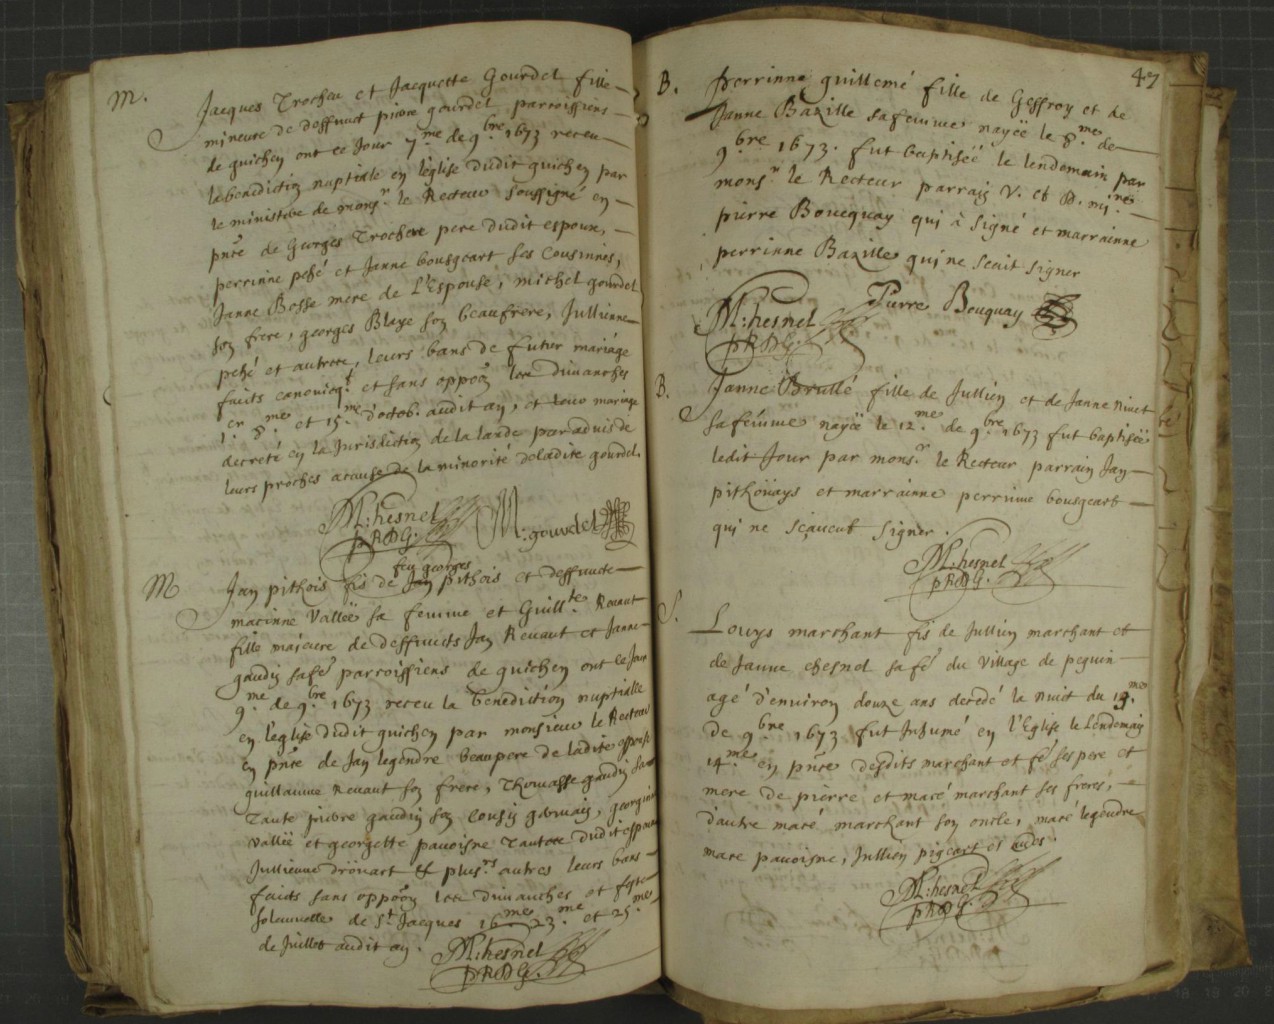 M.
Jacques Trocheu et Jacquette Gourdel fille
mineure de deffunct pierre gourdel parroissiens
de guichen ont ce Jour 7.me de 9.bre 1673 receu
la benediction nuptiale en l'église dudit guichen par
le ministere de mons.r le Recteur soussigné en
pnce de Georges Trocheu pere dudit espoux,
perrinne pehé et Janne bousgeart ses Cousinnes,
Janne Bosse mere de L'Espouse, michel gourdel
son frere, georges Blaye son beaufrere, Jullienne
pehé et autres, leurs bans de futur mariage
faits canonicq.t et sans oppoon les dimanches
1.er 8.me et 15.me d'octob. audit an, et leur mariage
decreté en la Jurisdiction de la lande par advis de
leurs proches acause de la minorité deladite gourdel.
M: hesnel
P.R.D.G.
M: gourdel
M
feu georges
Jan pithois fis de Jan pithois et deffuncte
mathinne Valleë sa femme et Guill.te Renaut
fille majeure de deffuncts Jan Renaut et Janne
gaudin sa fe parroissiens de guichen ont ce Jour
9.me de 9.bre 1673 receu la benediction nuptialle
en l'église dudit guichen par monsieur le Recteur
en pnce de Jan legendre beaupere de ladite espouse
guillaume Renaut son frere, Thomasse gaudin sa
Tante pierre gaudin son cousin germain, georgine
Valleë et georgette pavoisne Tantes dudit espoux
Jullienne droüart et plus.rs autres leurs bans
faits sans oppoon les dimanches et feste
solennelle de S.t Jacques 16.me 23.me et 25.me
de Juillet audit an.
M: hesnel
P.R.D.G.
47
B.
Perrinne guillemé fille de Geffroy et de
Janne Bazille sa femme nayëe le 8.me de
9.bre 1673. fut baptiseë le lendemain par
mons.r le Recteur parrain V. et D. mi.re
pierre Boucquay qui à signé et marrainne
perrinne Bazille qui ne scait signer
M: hesnel
P.R.D.G.
Pierre Bouquay
B.
Janne Brullé fille de Jullien et de Janne Ninet
sa femme nayëe le 12.me de 9.bre 1673 fut baptiseë
ledit Jour par mons.r le Recteur parrain Jan
pitkoüays et marrainne perrinne bousgeart
qui ne sçavent signer.
M: hesnel
P.R.D.G.
S.
Louys marchant fis de Jullien marchant et
de Janne chesnel sa fe du village de peguin
agé d'environ douze ans decedé la nuit du 13.me
de 9.bre 1673 fut Inhumé en l'Eglise le Lendemain
14.me en pnce desdits marchant et fe ses pere et
mere de pierre et macé marchant ses freres,
d'autre macé marchant son oncle, macé legendre
mace pavoisne, Jullien pigeart et aues.
M: hesnel
P.R.D.G.